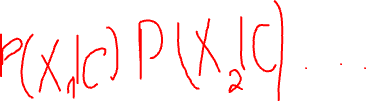 P(X₁|C) P(X₂|C) . . .